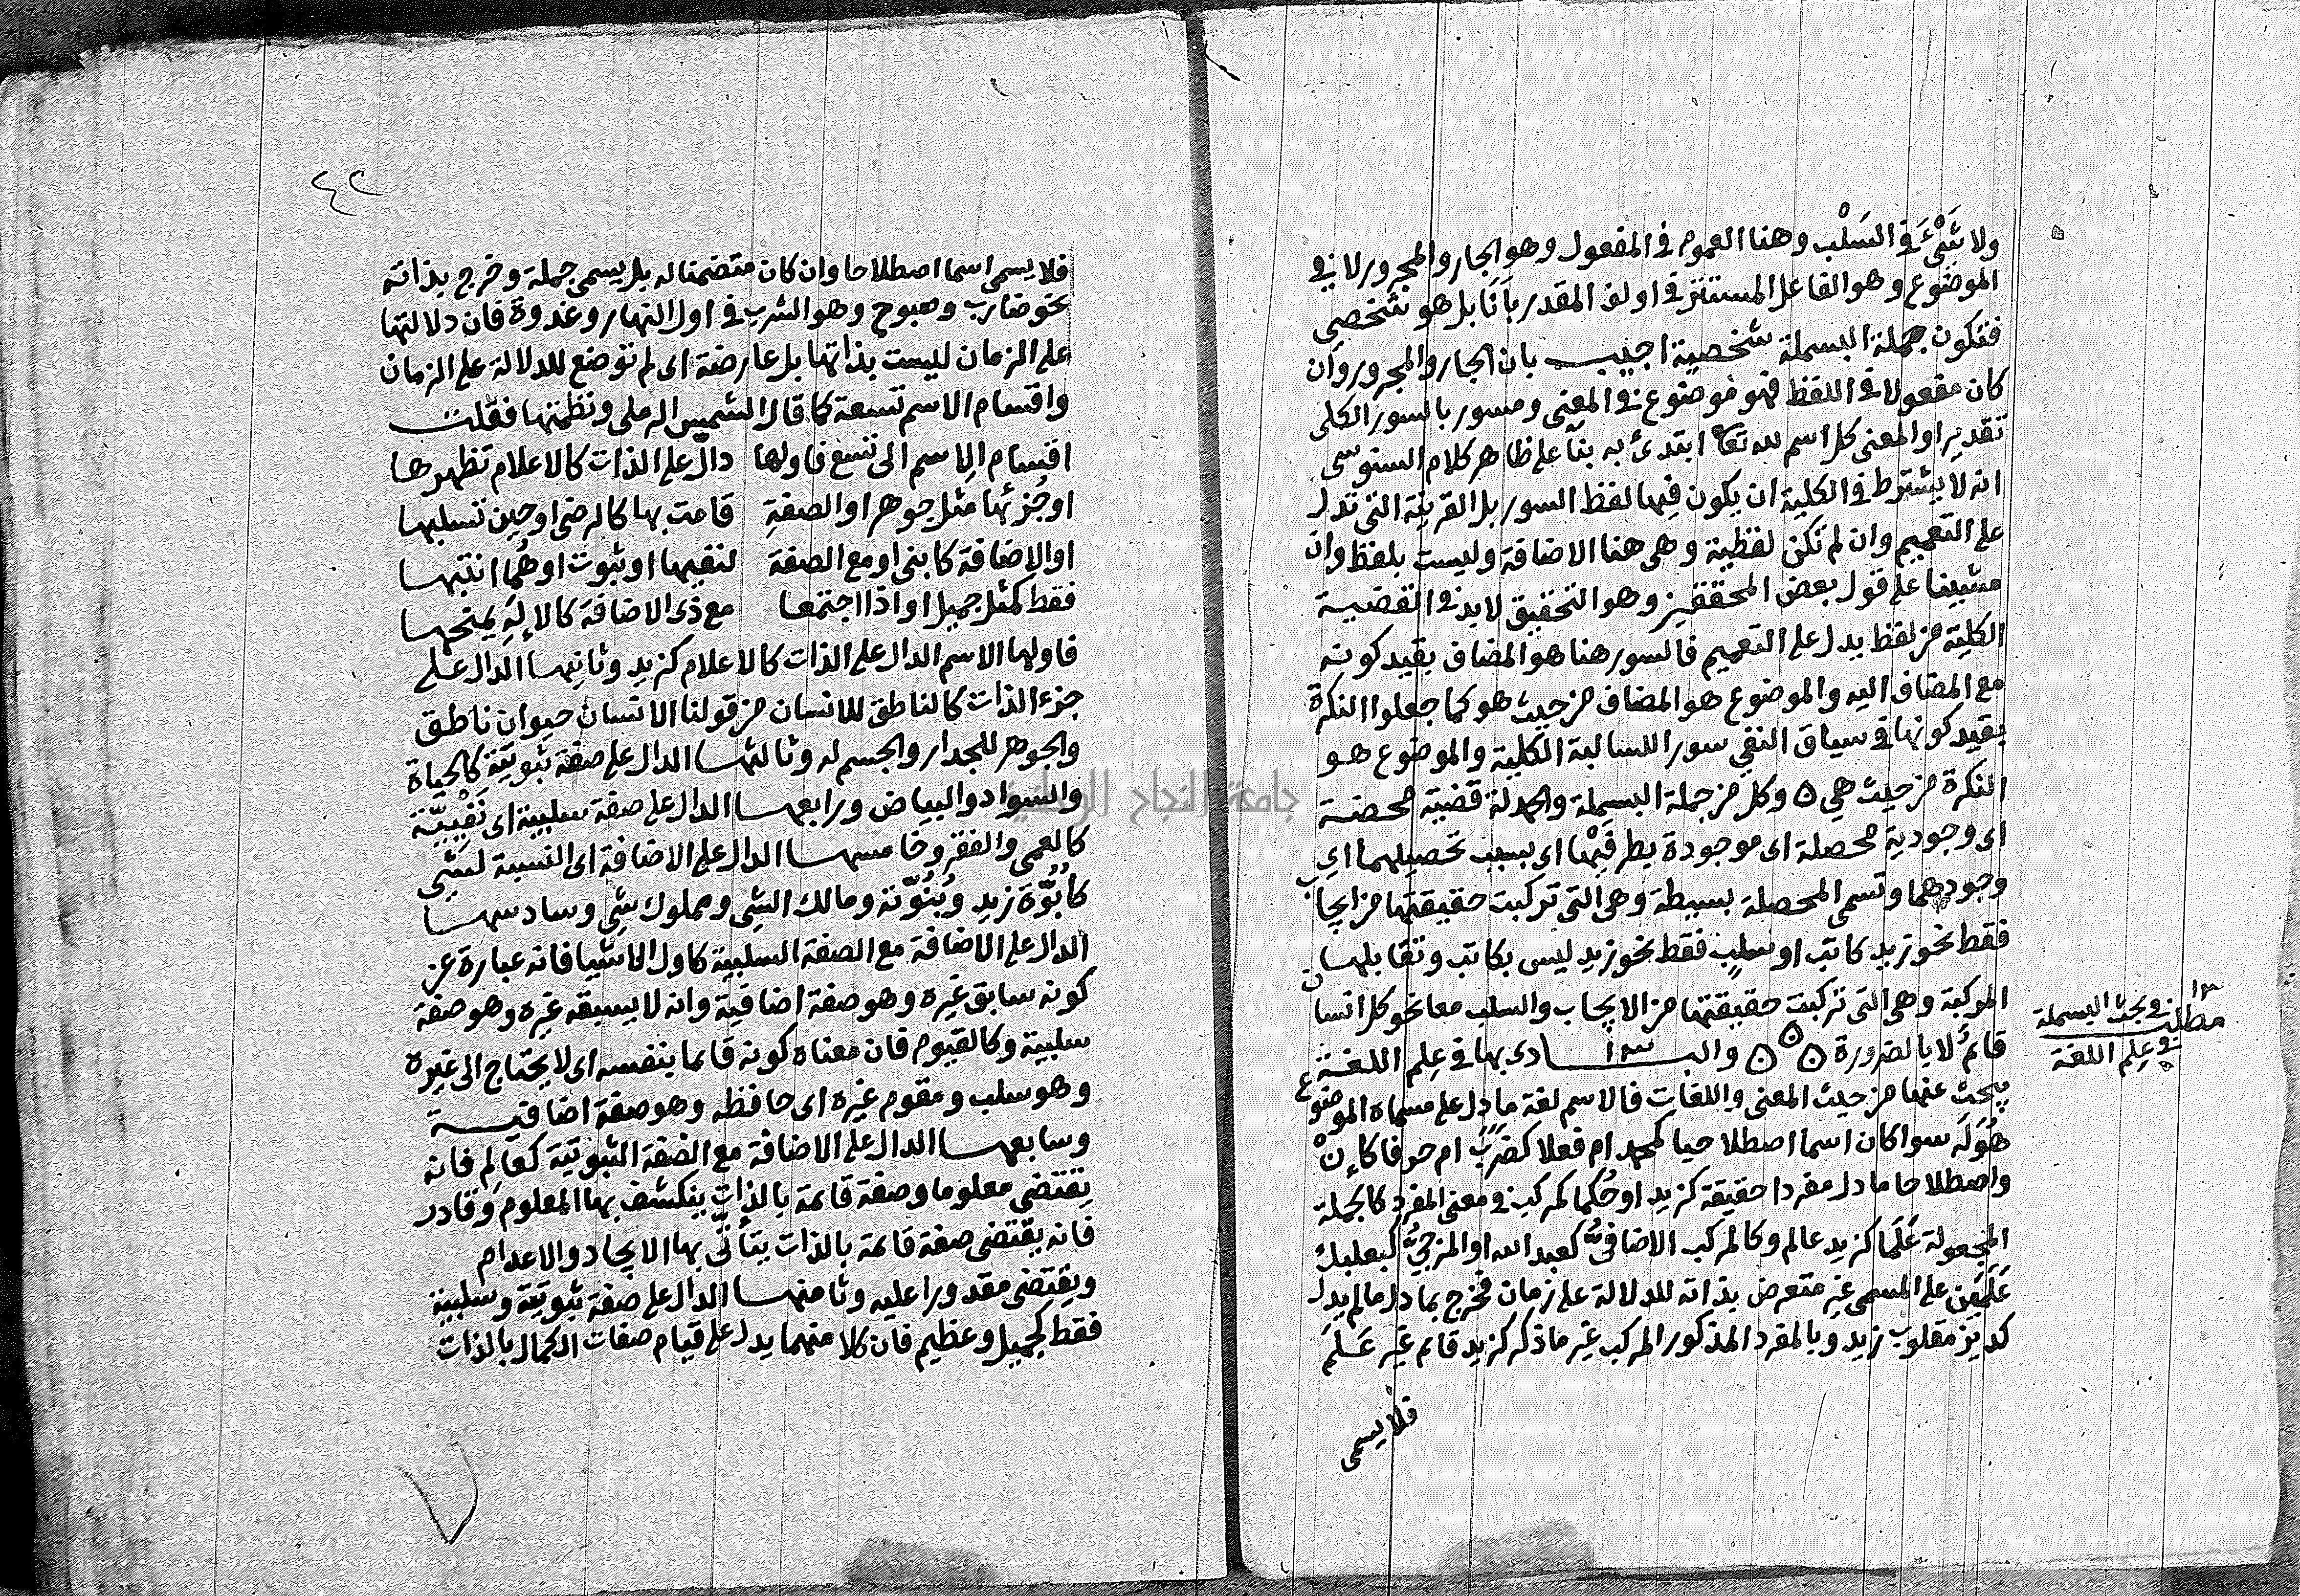 ولا شَيْءَ في السَلْب وهنا العموم في المفعول وهو الجار والمجرور لا في
الموضوع وهو الفاعل المستتر في اولف المقدر بأَنَا بل هو شخصي
فتكون جملة البسملة شخصية اجيب بان الجار والمجرور وان
كان مفعولا في اللفظ فهو موضوع في المعنى ومسور بالسور الكلى
تقديرا والمعنى كل اسم لله تعا ابتدئ به بنا على ظاهر كلام السنوسى
انه لا يشترط في الكلية ان يكون فيها لفظ السور بل القرينة التى تدل
على التعميم وان لم تكن لفظية وهى هنا الاضافة وليست بلفظ وان
مشينا على قول بعض المحققين وهو التحقيق لا بد في القضية
الكلية من لفظ يدل على التعميم فالسور هنا هو المضاف بقيد كونه
مع المضاف اليه والموضوع هو المضاف من حيث هو كما جعلوا النكرة
بقيد كونها في سياق النفي سورا للسالبة الكلية والموضوع هو
النكرة من حيث هي ٥ وكل من جملة البسملة والحمدلة قضية محضة
اى وجودية محصلة اى موجودة بطرفيْها اى بسبب تحصيلهما اي
وجودهما وتسمى المحصلة بسيطة وهى التى تركبت حقيقتها من ايجاب
فقط نحو زيد كاتب او سلبٍ فقط نحو زيد ليس بكاتب وتقابلها
المركبة وهى التى تركبت حقيقتها من الايجاب والسلب معا نحو كل انسان
قائمٌ لا بالضرورة ٥ ٥ ٥ والبادى بها في عِلم اللغة
يبحث عنها من حيث المعنى واللغات فالاسم لغة ما دل على مسماه الموضوع
هُوَلَه سوا كان اسما اصطلاحيا كمحمد ام فعلا كضَرَبَ ام حرفا كإنْ
واصطلاحا ما دل مفردا حقيقة كزيد او حُكما كمركب في معنى المفرد كالجملة
المجعولة عَلَما كزيد عالم وكالمركب الاضافىّ كعبد الله او المزجىّ كبعلبك
عَلَمَين على المسمى غير متعرض بذاته للدلالة على زمان فخرج بما دل ما لم يدل
كديز مقلوب زيد وبالمفرد المذكور المركب غير ما ذكر كزيد قائم غير عَلَم
فلا يسمى
مطلب في بحث البسملة
في عِلم اللغة
٤٢
فلا يسمى اسما اصطلاحا وان كان متضمنا له بل يسمى جملة وخرج بذاته
نحو ضارب وصبوح وهو الشرب في اول النهار وغدوة فان دلالتها
على الزمان ليست بذاتها بل عارضة اى لم توضع للدلالة على الزمان
واقسام الاسم تسعة كما قال الشمس الرملى ونظمتها فقلت
اقسام الاسم الى تسع فاولها دال على الذات كالاعلام تظهرها
او جُزئها مثل جوهر او الصفةِ قامت بها كالرضى او حين تسلبها
او الاضافة كابنى او مع الصفة لنفيها او ثبوت او هُما انتبها
فقط كمثل جميل او اذا اجتمعا مع ذى الاضافة كالإلهِ يمنحها
فاولها الاسم الدال على الذات كالاعلام كزيد وثانيها الدال على
جزء الذات كالناطق للانسان من قولنا الانسان حيوان ناطق
والجوهر للجدار والجسم له وثالثها الدال على صفة ثبوتية كالحياة
والسواد والبياض ورابعها الدال على صفة سلبية اى نَفْييّة
كالعمى والفقر وخامسها الدال على الاضافة اى النسبة لشي
كأُبُوّة زيد وبُنُوّته ومالك الشي ومملوك شي وسادسها
الدال على الاضافة مع الصفة السلبية كاول الاشيا فانه عبارة عن
كونه سابق غيره وهو صفة اضافية وانه لا يسبقه غيره وهو صفة
سلبية وكالقيوم فان معناه كونه قائما بنفسه اى لا يحتاج الى غيره
وهو سلب ومقوم غيره اى حافظه وهو صفة اضافية
وسابعها الدال على الاضافة مع الصفة الثبوتية كعالِم فانه
يقتضى معلوما وصفة قائمة بالذات ينكشف بها المعلوم وقادر
فانه يقتضى صفة قائمة بالذات يتأتّى بها الايجاد والاعدام
ويقتضى مقدورا عليه وثامنها الدال على صفة ثبوتية وسلبية
فقط كجميل وعظيم فان كلا منهما يدل على قيام صفات الكمال بالذات
جامعة النجاح الوطنية